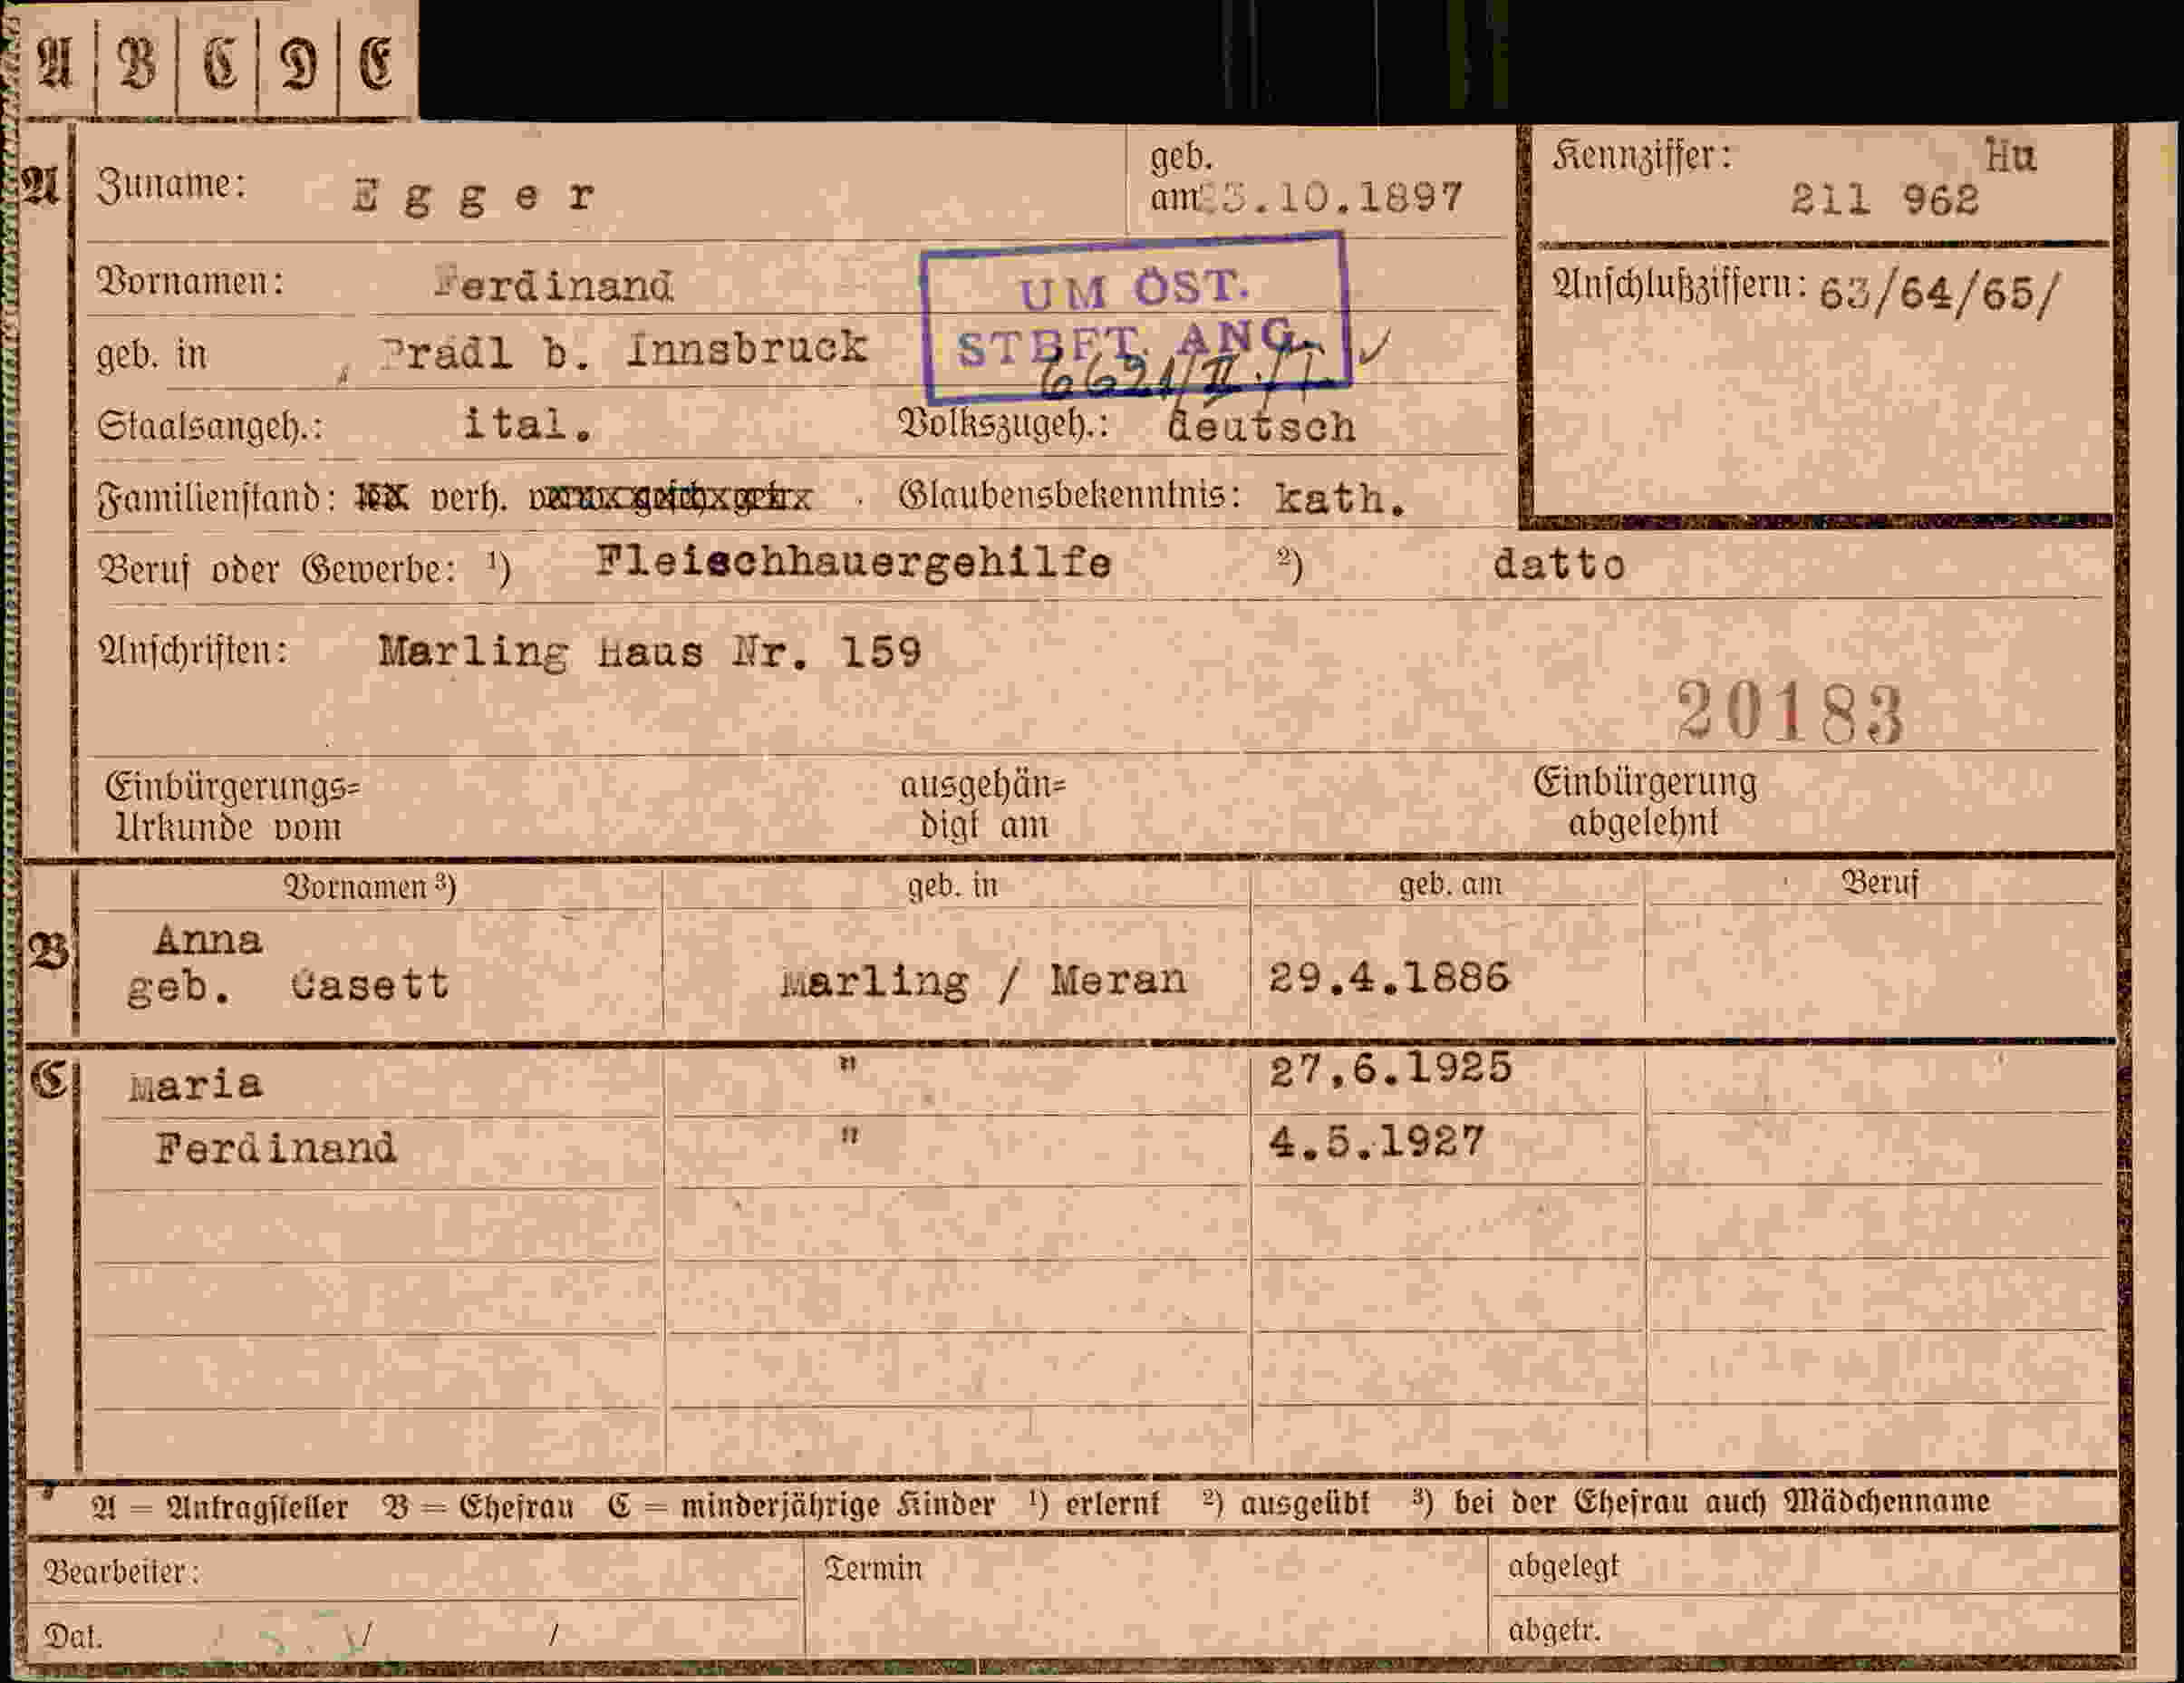 A B C D E
A Zuname: Egger geb. am 23.10.1897 Kennziffer: Hu 211 962
Vornamen: Ferdinand
UM ÖST.
STBFT. ANG.
6621/II./I.
Anschlußziffern: 63/64/65/
geb. in Pradl b. Innsbruck
Staatsangeh.: ital. Volkszugeh.: deutsch
Familienstand: verh. Glaubensbekenntnis: kath.
Beruf oder Gewerbe: ¹) Fleischhauergehilfe ²) datto
Anschriften: Marling Haus Nr. 159
20183
Einbürgerungs= ausgehän= Einbürgerung
Urkunde vom digt am abgelehnt
Vornamen ³) geb. in geb. am Beruf
B Anna
geb. Gasett Marling / Meran 29.4.1886
C Maria " 27.6.1925
Ferdinand " 4.5.1927
A = Antragsteller B = Ehefrau C = minderjährige Kinder ¹) erlernt ²) ausgeübt ³) bei der Ehefrau auch Mädchenname
Bearbeiter: Termin abgelegt
Dat. / / abgetr.